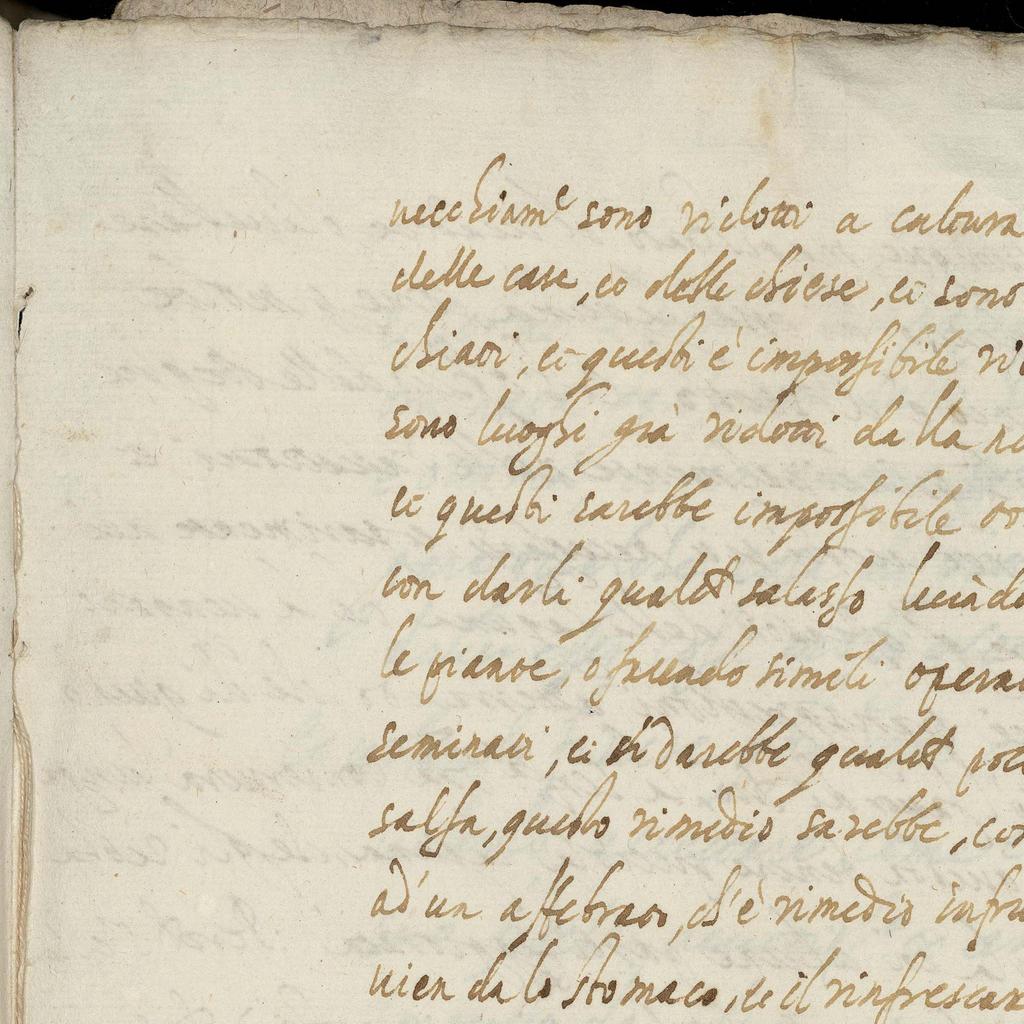 vecchiam^e sono ridotti a coltura
delle case, et delle chiese, et sono
chiari, et questi è impossibile ri
sono luoghi già ridotti dalla
et questi sarebbe impossibile
con darli qualch salasso
le piante, o facendo simili opera
seminati, et si darebbe qualch
salsa, questo rimedio sarebbe, co
ad'un affebrato, ch'è rimedio infru
vien da lo stomaco, se il rinfrescar